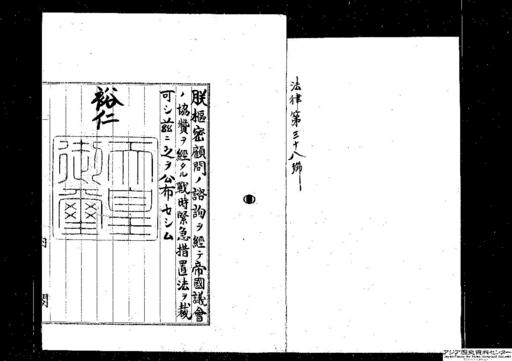 法律第三十八號
朕樞密顧問ノ諮詢ヲ經テ帝國議會
ノ協賛ヲ經タル戰時緊急措置法ヲ裁
可シ茲ニ之ヲ公布セシム
裕仁
天皇御璽
内閣
アジア歴史資料センター